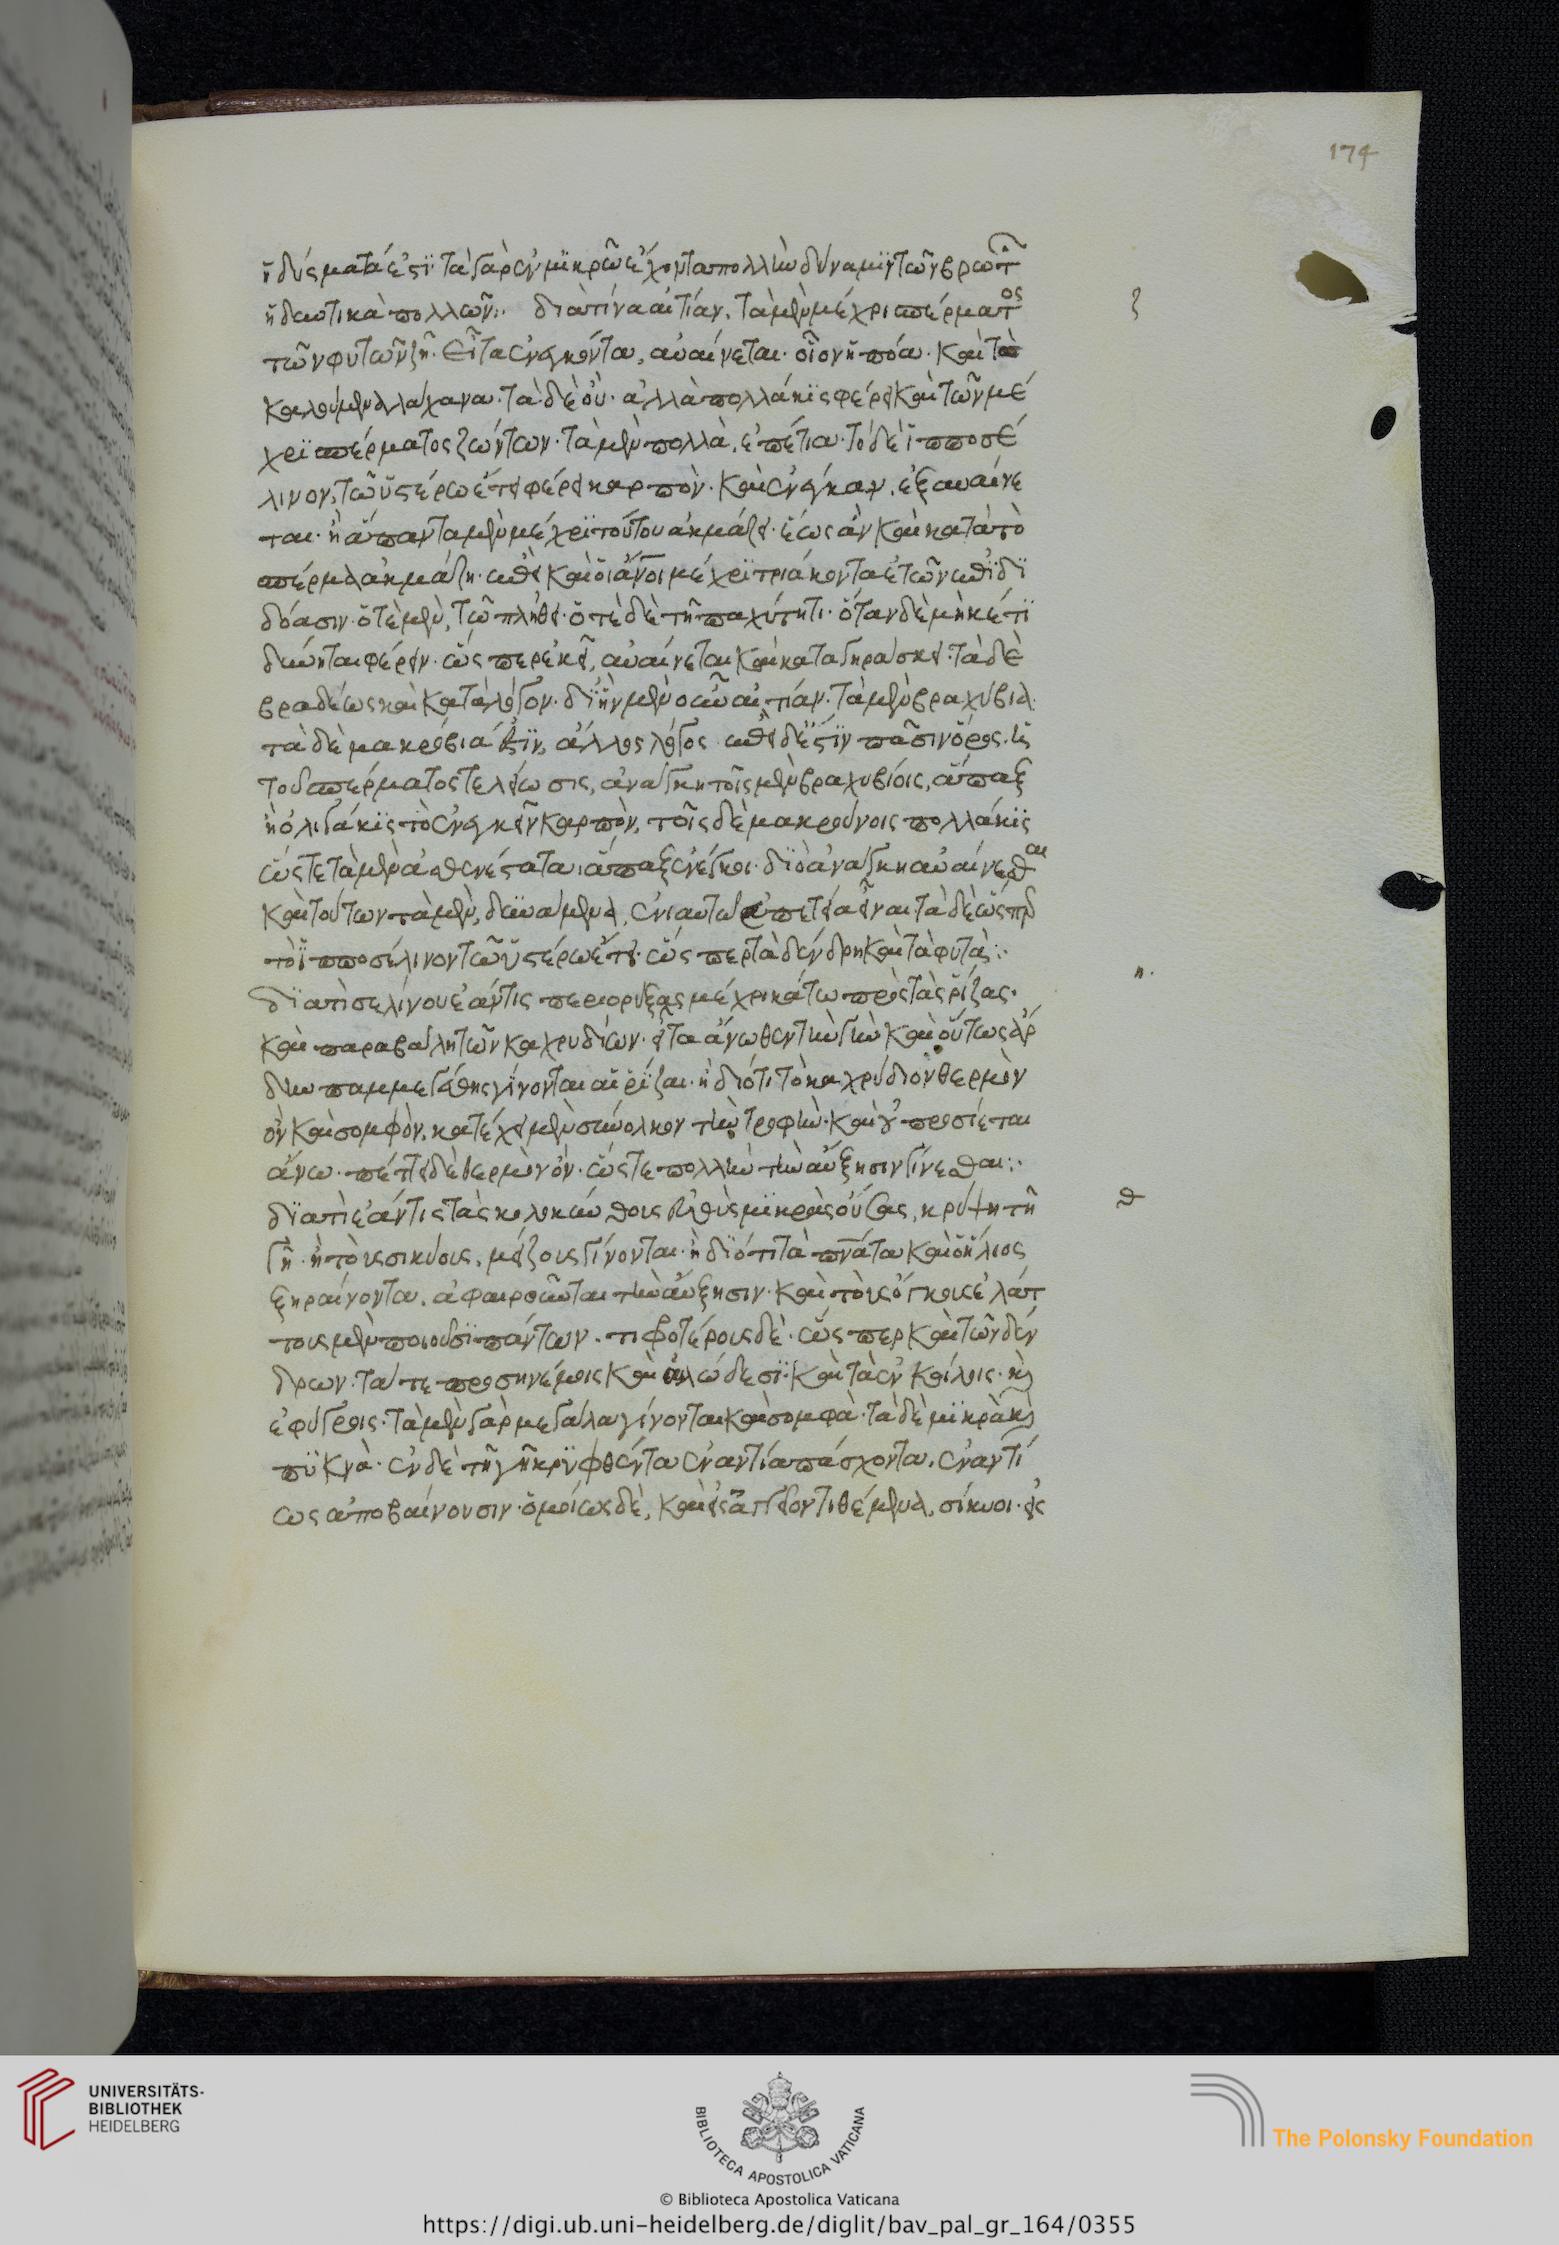 ἡδύσματά ἐστϊ· τὰ γὰρ ἐν μϊκρῶ ἔχοντα πολλὴν δύναμϊν τῶν βρωτῶν
ἡδυντικὰ πολλῶν:· διὰ τίνα αἰτίαν, τὰ μὲν μέχρι σπέρματος
ζ
τῶν φυτῶν ζῆ· εἶτα ἐνεγκόντα, αὐαίνεται· οἷον ἡ πόα· καὶ τὰ
καλούμενα λάχανα· τὰ δὲ οὐ· ἀλλὰ πολλάκϊς φέρει καὶ τῶν μέ
χρϊ σπέρματος ζώντων· τὰ μὲν πολλὰ, ἐπέτια· τὸ δὲ ἱπποσέ
λινον, τῶ ὑστέρω ἔτει φέρει καρπὸν· καὶ ἐνεγκαν, ἐξαυαίνε
ται· ἢ ἅπαντα μὲν μέχρϊ τούτου ἀκμάζει· ἕως ἂν καὶ κατὰ τὸ
σπέρμα ἀκμάζη· ἐπεὶ καὶ οἱ ἄνοι μέχρϊ τριάκοντα ἐτῶν ἐπϊδϊ
δόασιν· ὁτὲ μὲν, τῶ πλήθει· ὁτὲ δὲ τῆ παχύτητι· ὅταν δὲ μηκέτϊ
δύνηται φέρειν· ὥσπερ ἐκεῖ, αὐαίνεται καὶ καταγηράσκει· τὰ δὲ
βραδέως καὶ κατὰ λόγον· δι' ἣν μὲν οὖν αἰτίαν· τὰ μὲν βραχύβια
τὰ δὲ μακρόβιά ἐστϊν, ἄλλος λόγος ἐπεὶ δέ ἐστϊν πᾶσιν ὅρος, ἡ
τοῦ σπέρματος τελείωσις, ἀνάγκη τοῖς μὲν βραχυβίοις, ἅπαξ
ἢ ὀλιγάκϊς τὸ ἐνεγκεῖν καρπὸν, τοῖς δὲ μακροβίοις πολλάκϊς
ὥστε τὰ μὲν ἀσθενέστατα, ἅπαξ ἐνέγκοι· δϊὸ ἀνάγκη αὐαίνεσθαι
καὶ τούτων τὰ μὲν, δυνάμενα, ἐνιαυτῶ ἐπέτεια εἶναι τὰ δὲ ὥσπερ
τὸ ἱπποσέλινον τῶ ὑστέρω ἔτει· ὥσπερ τὰ δένδρη καὶ τὰ φυτὰ:·
η·
δϊατὶ σελίνου ἐάν τις περιορύξας μέχρι κάτω πρὸς τὰς ῥίζας·
καὶ παραβάλη τῶν καχρυδίων· εἶτα ἄνωθεν τὴν γῆν καὶ οὕτως ἄρ
δην παμμεγέθης γίνονται αἱ ῥίζαι· ἢ διότι τὸ καχρύδιον θερμὸν
ὂν καὶ σομφὸν, κατέχει μὲν σύνολκον τὴν τροφὴν· καὶ οὐ προσίεται
ἄνω· πέττει δὲ θερμὸν ὄν· ὥστε πολλὴν τὴν αὔξησιν γίνεσθαι:·
θ
δϊατὶ ἐάν τις τὰς κολοκύνθας εὐθὺς μϊκρὰς οὔσας, κρύψη τῆ
γῆ· ἢ τοὺς σικύους, μείζους γίνονται· ἢ δϊότι τὰ πνάτα καὶ ὁ ἥλιος
ξηραίνοντα, ἀφαιροῦνται τὴν αὔξησιν· καὶ τοὺς ὄγκους ἐλάτ
τους μὲν ποιοῦσϊ πάντων· στιφοτέρους δὲ· ὥσπερ καὶ τῶν δέν
δρων· τά τε προσηνέμοις καὶ ἁλώδεσϊ· καὶ τὰ ἐν κοίλοις· καὶ
ἐφύδροις· τὰ μὲν γὰρ μεγάλα γίνονται καὶ σομφὰ· τὰ δὲ μϊκρὰ καὶ
πϋκνὰ· ἐν δὲ τῆ γῆ κρϋφθέντα ἐναντία πάσχοντα, ἐναντί
ως ἀποβαίνουσιν· ὁμοίως δὲ, καὶ εἰς ἀγγεῖον τιθέμενα, σίκυοι· εἰς
174
UNIVERSITÄTS-
BIBLIOTHEK
HEIDELBERG
BIBLIOTECA APOSTOLICA VATICANA
The Polonsky Foundation
© Biblioteca Apostolica Vaticana
https://digi.ub.uni-heidelberg.de/diglit/bav_pal_gr_164/0355